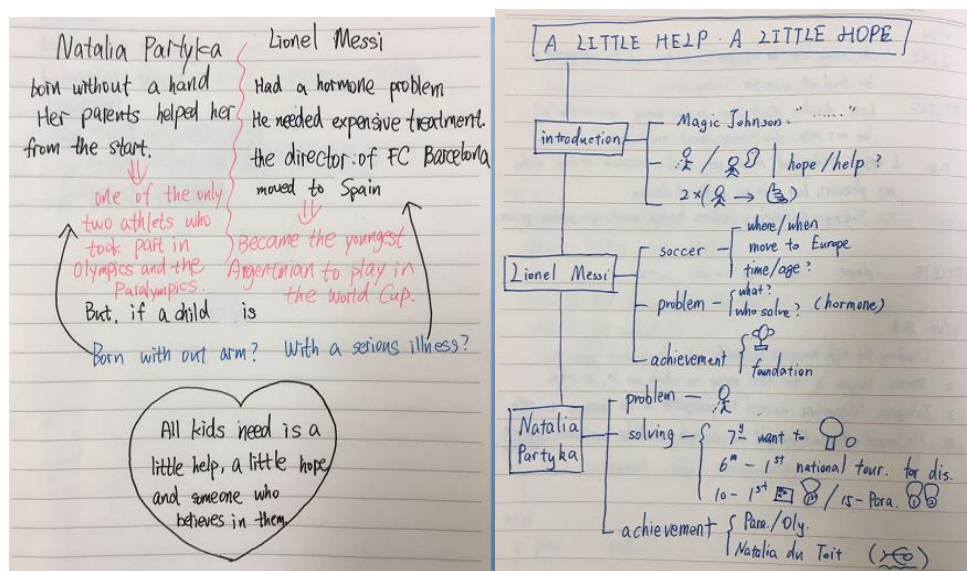 Natalia Partyka
born without a hand
Her parents helped her
from the start.
one of the only
two athlets who
took part in
Olympics and the
Paralympics.
Lionel Messi
Had a hormone problem
He needed expensive treatment.
the director of FC Barcelona
moved to Spain
Became the youngest
Argentnian to play in
the World Cup.
But, if a child is
Born with out arm? With a serious illness?
All kids need is a
little help, a little hope
and someone who
believes in them.
A LITTLE HELP · A LITTLE HOPE
introduction
Magic Johnson: "......"
/ hope/help ?
2×( → )
Lionel Messi
soccer
where/when
move to Europe
time/age?
problem
what?
who solve? (hormone)
achievement
foundation
Natalia
Partyka
problem
solving
7 want to
6 - 1st national tour. for dis.
10 - 1st / 15 - Para.
achievement
Para./Oly.
Natalia du Toit